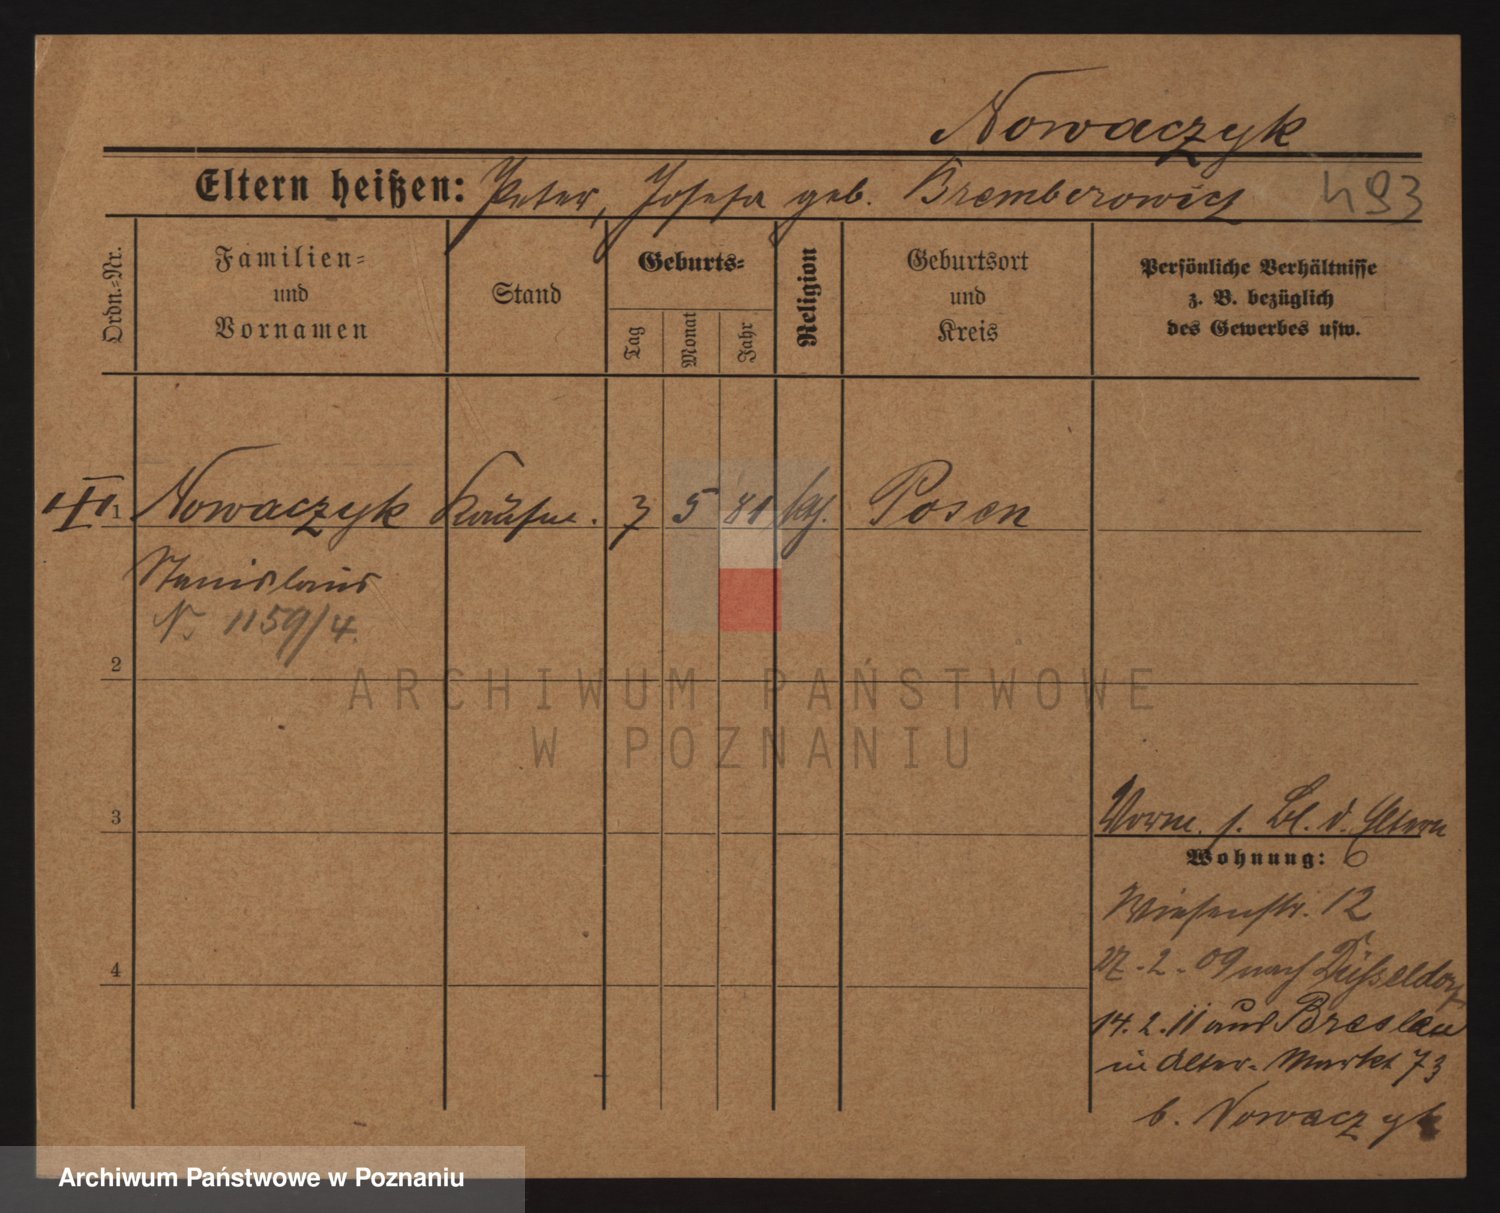 Nowaczyk
Eltern heißen: Peter, Josefa geb. Bremberowicz 493
Ordn.-Nr.
Familien-
und
Vornamen
Stand
Geburts-
Tag
Monat
Jahr
Religion
Geburtsort
und
Kreis
Persönliche Verhältnisse
z. B. bezüglich
des Gewerbes usw.
1 Nowaczyk Kaufm. 7 5 81 kth. Posen
Stanislaus
N. 1159/4.
2
ARCHIWUM PAŃSTWOWE
W POZNANIU
3
Vorm. s. Bl. d. Eltern
Wohnung: 6
Wiesenstr. 12
27.2.09 nach Düsseldorf
4
14.2.11 aus Breslau
in Alter-Markt 73
b. Nowaczyk
Archiwum Państwowe w Poznaniu